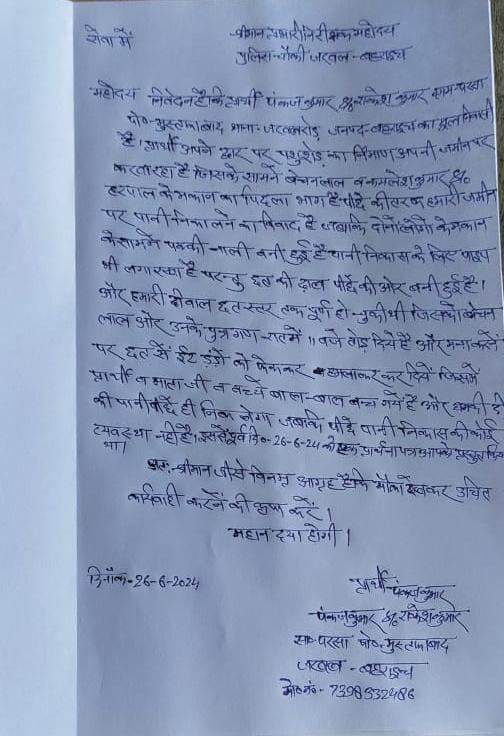 सेवा में
श्रीमान प्रभारी निरीक्षक महोदय
पुलिस चौकी जरवल - बहराइच
महोदय निवेदन है कि प्रार्थी पंकज कुमार S/o राकेश कुमार ग्राम-परसा
पो०-मुस्तफाबाद थाना-जरवलरोड, जनपद-बहराइच का मूल निवासी
है। प्रार्थी अपने द्वार पर पशुशेड का निर्माण अपनी जमीन पर
करवा रहा है जिसके सामने बेचनलाल व कमलेश कुमार S/o
हरपाल के मकान का पिछला भाग है पीछे की तरफ हमारी जमीन
पर पानी निकालने का विवाद है जबकि दोनों लोगों के मकान
के सामने पक्की नाली बनी हुई है पानी निकास के लिए पाइप
भी लगा रखा है परन्तु छत की ढाल पीछे की ओर बनी हुई है।
और हमारी दीवाल छत स्तर तक पूर्ण हो चुकी थी जिसको बेचन
लाल और उनके पुत्रगण रात में 11 बजे तोड़ दिये है और मना करने
पर छत से ईट डंडो को फेंककर हमला कर दिये जिसमें
प्रार्थी व माता जी व बच्चे बाल-बाल बच गये है और धमकी दी
की पानी पीछे ही निकलेगा जबकि पीछे पानी निकास की कोई
व्यवस्था नही है। इससे पूर्व दि०-26-6-24 को एक प्रार्थना पत्र आपको प्रस्तुत किया
था।
अतः श्रीमान जी से विनम्र आग्रह है कि मौका देखकर उचित
कार्यवाही करने की कृपा करें।
महान दया होगी।
दिनाँक-26-6-2024
प्रार्थी-पंकज कुमार
पंकज कुमार S/o राकेश कुमार
सा०-परसा पो०-मुस्तफाबाद
जरवल - बहराइच
मो०नं०- 7398932486